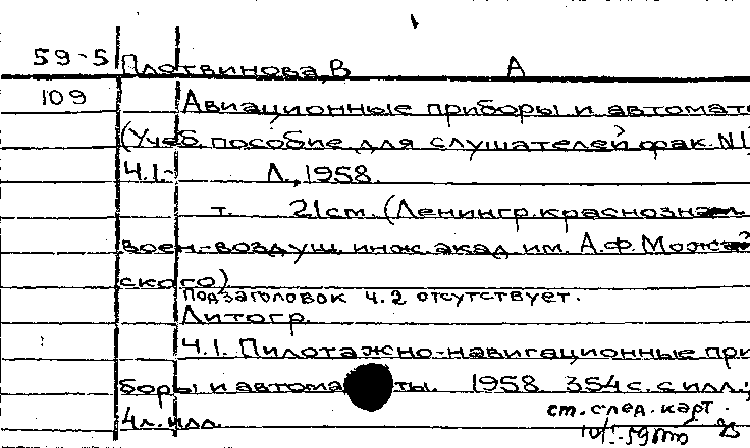 59-5 Плотвинова, В А
109 Авиационные приборы и автомат
(Учеб. пособие для слушателей фак. N1)
Ч.1.- Л., 1958.
т. 21см. (Ленингр. краснознам
воен-воздуш. инж. акад им. А.Ф. Можай
ского)
Подзаголовок ч.2 отсутствует.
Литогр.
Ч.1. Пилотажно-навигационные при
боры и автоматы. 1958 354 с. с илл.;
4 л. илл.
ст. след. карт.